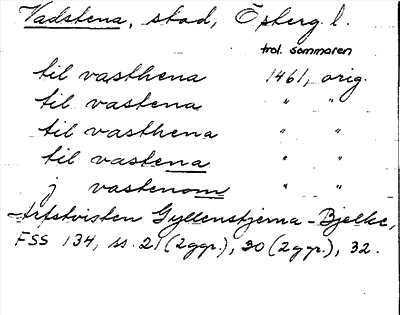 Vadstena, stad, Österg. l.
trol. sommaren
til vasthena 1461, orig.
til vastena " "
til vasthena " "
til vastena " "
j vastenom " "
Arfstvisten Gyllenstjerna-Bjelke,
FSS 134, ss. 21 (2 ggr.), 30 (2 ggr.), 32.